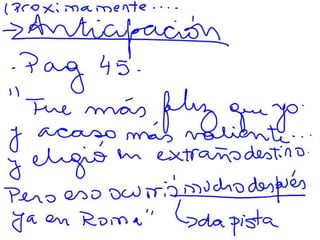 (Proximamente....
→ Anticipación
. Pag 45.
"Fue más feliz que yo.
y acaso más valiente...
y eligió un extraño destino.
Pero eso ocurrió mucho después
ya en Roma" ↳ da pista